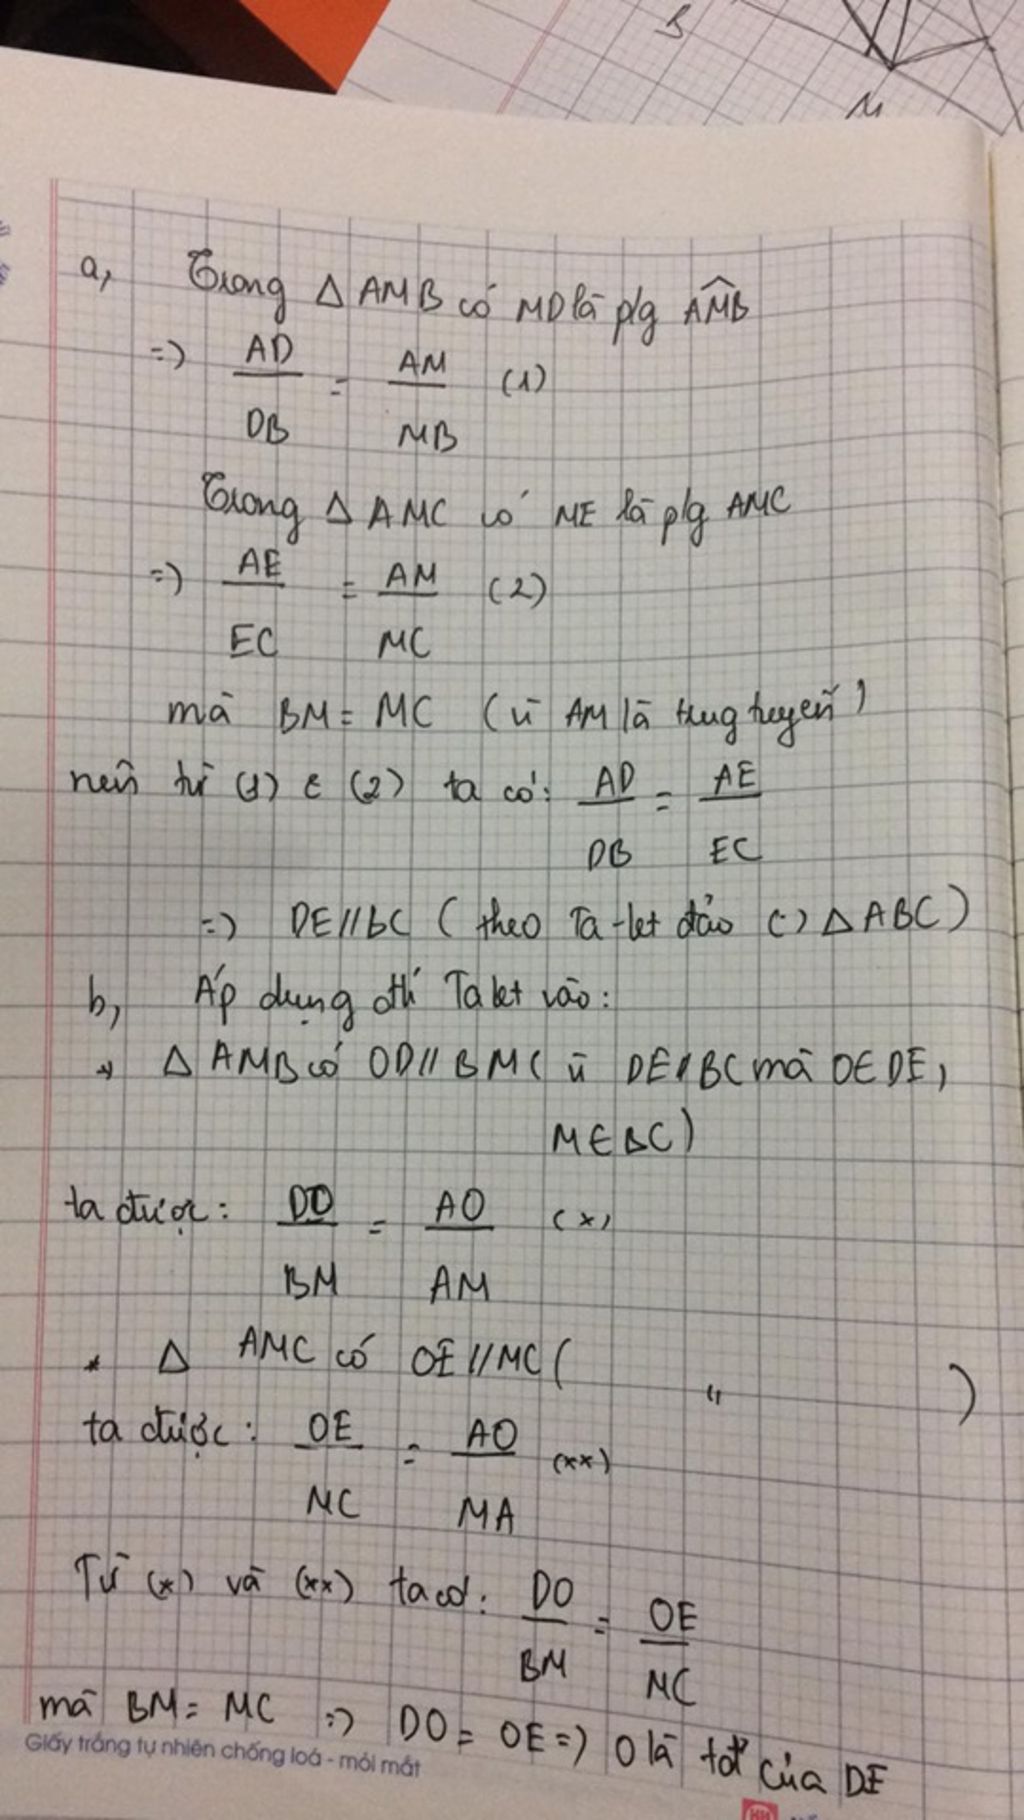 B
M
a, Trong Δ AMB có MD là p/g \widehat{AMB}
=) AD/DB = AM/MB (1)
Trong Δ AMC có ME là p/g AMC
=) AE/EC = AM/MC (2)
mà BM = MC (vì AM là trung tuyến)
nên từ (1) & (2) ta có: AD/DB = AE/EC
=) DE//BC (theo Ta-let đảo (-) Δ ABC)
b, Áp dụng đlí Talet vào:
* Δ AMB có OD//BM ( vì DE//BC mà O∈DE,
M∈BC)
ta được: DO/BM = AO/AM (*)
* Δ AMC có OE//MC ( " )
ta được: OE/MC = AO/MA (**)
Từ (*) và (**) ta có: DO/BM = OE/MC
mà BM = MC =) DO = OE =) O là tđ của DE
Giấy trắng tự nhiên chống loá - mỏi mắt
HH